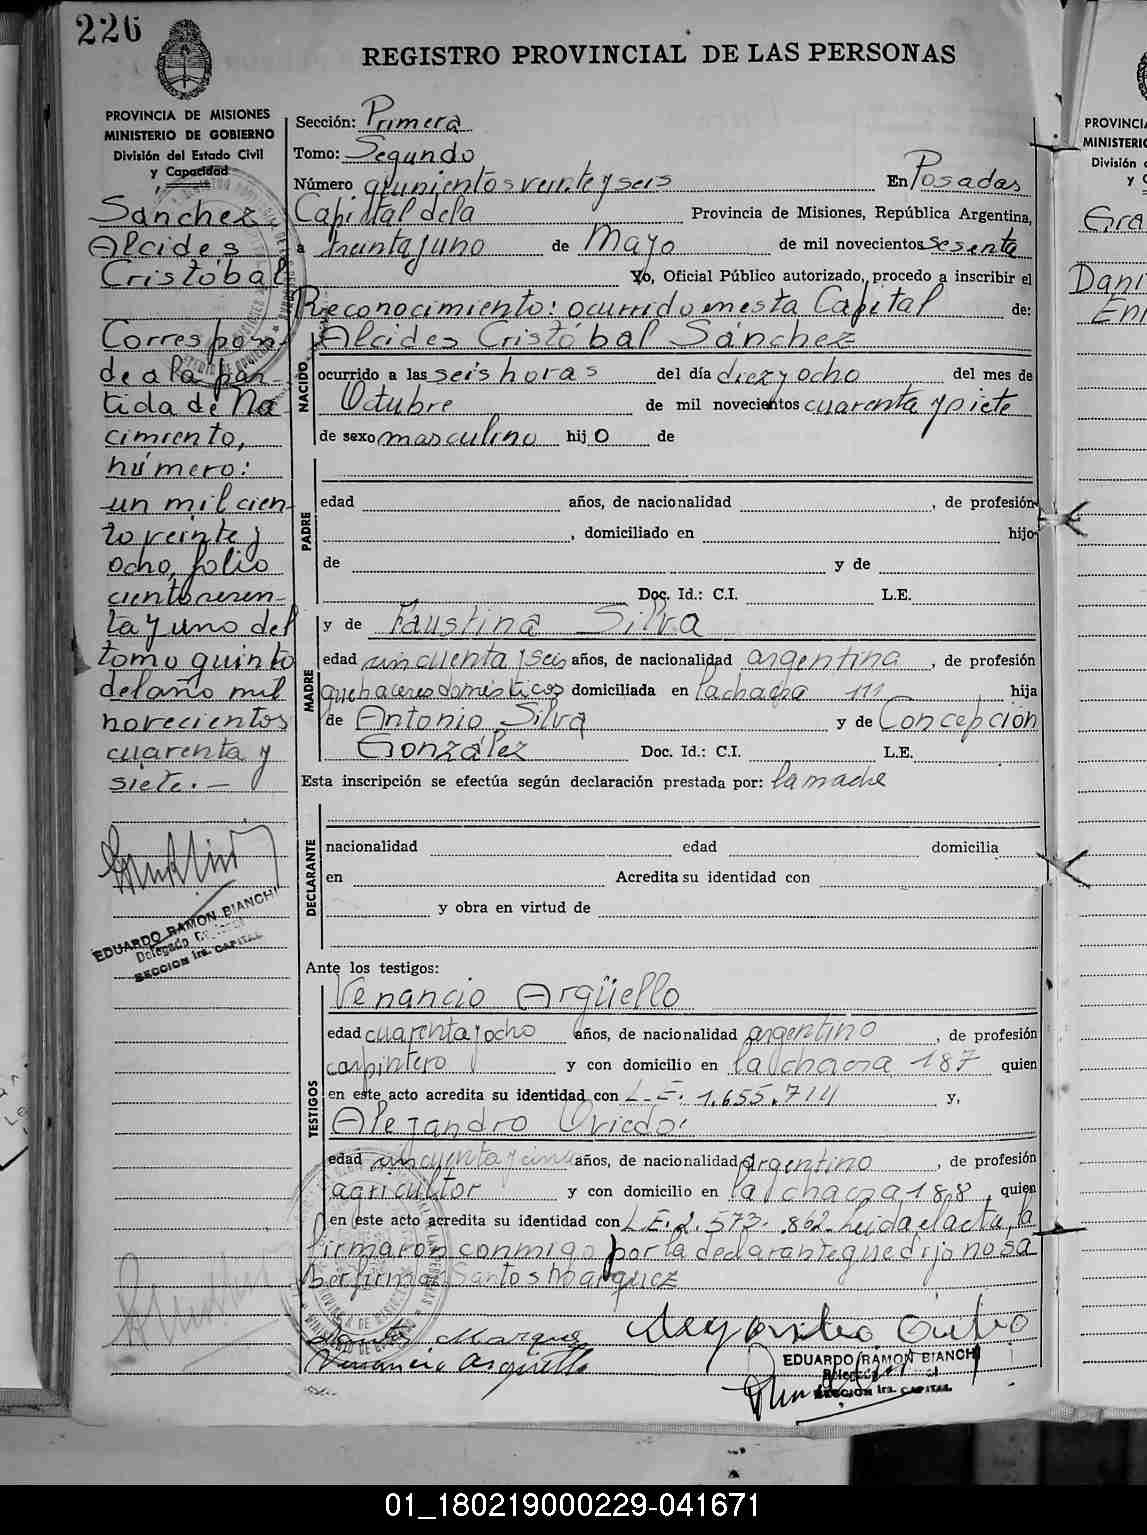 226
REGISTRO PROVINCIAL DE LAS PERSONAS
PROVINCIA DE MISIONES
MINISTERIO DE GOBIERNO
División del Estado Civil
y Capacidad
Sánchez
Alcides
Cristóbal
Correspon-
de a la par-
tida de Na
cimiento,
número:
un mil cien
to veinte y
ocho, folio
ciento
ta y uno del
tomo quinto
del año mil
novecientos
cuarenta y
siete.-
EDUARDO RAMON BIANCHI
Delegado
SECCION 1ra. CAPITAL
Sección: Primera
Tomo: Segundo
Número quinientos veinte y seis En Posadas
Capital de la Provincia de Misiones, República Argentina,
a treinta y uno de Mayo de mil novecientos sesenta
Yo, Oficial Público autorizado, procedo a inscribir el
Reconocimiento: ocurrido en esta Capital de:
Alcides Cristóbal Sánchez
NACIDO
ocurrido a las seis horas del día diez y ocho del mes de
Octubre de mil novecientos cuarenta y siete
de sexo masculino hijo de
PADRE
edad años, de nacionalidad , de profesión
, domiciliado en hijo
de y de
Doc. Id.: C.I. L.E.
y de Faustina Silva
MADRE
edad cincuenta y seis años, de nacionalidad argentina , de profesión
quehaceres domésticos domiciliada en la chacra 111 hija
de Antonio Silva y de Concepción
González Doc. Id.: C.I. L.E.
Esta inscripción se efectúa según declaración prestada por: la madre
DECLARANTE
nacionalidad edad domicilia
en Acredita su identidad con
y obra en virtud de
Ante los testigos:
TESTIGOS
Venancio Argüello
edad cuarenta y ocho años, de nacionalidad argentino , de profesión
carpintero y con domicilio en la chacra 187 quien
en este acto acredita su identidad con L.E. 1.655.711 y,
Alejandro Oviedo:
edad cincuenta y cinco años, de nacionalidad argentino , de profesión
agricultor y con domicilio en la chacra 188 , quien
en este acto acredita su identidad con L.E. 2.573.862. Leida el acta, la
firmaron conmigo por la declarante que dijo no sa
ber firmar Santos Marquez
Santos Marquez
Venancio Arguello
EDUARDO RAMON BIANCHI
SECCION 1ra. CAPITAL
PROVINCI
MINISTERIO
División d
y C
Gra
Dani
En
01_180219000229-041671